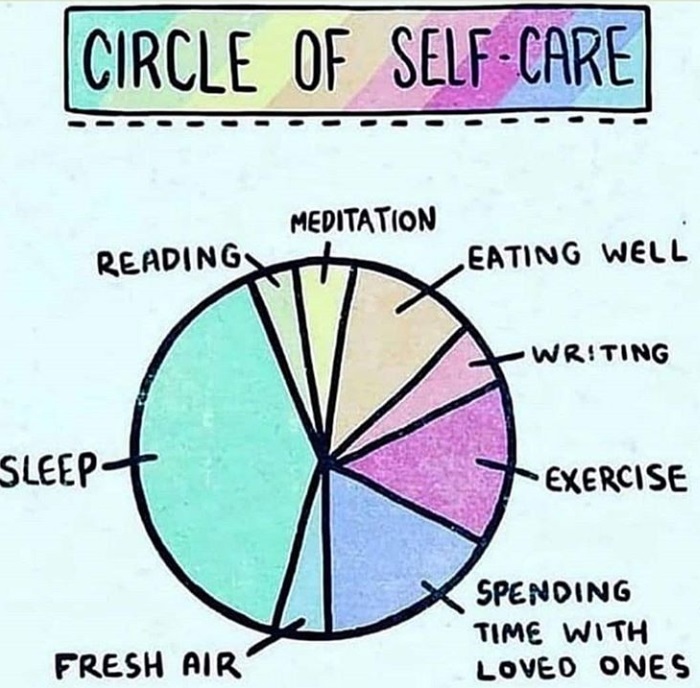 CIRCLE OF SELF-CARE
MEDITATION
READING
EATING WELL
WRITING
SLEEP
EXERCISE
SPENDING
TIME WITH
LOVED ONES
FRESH AIR